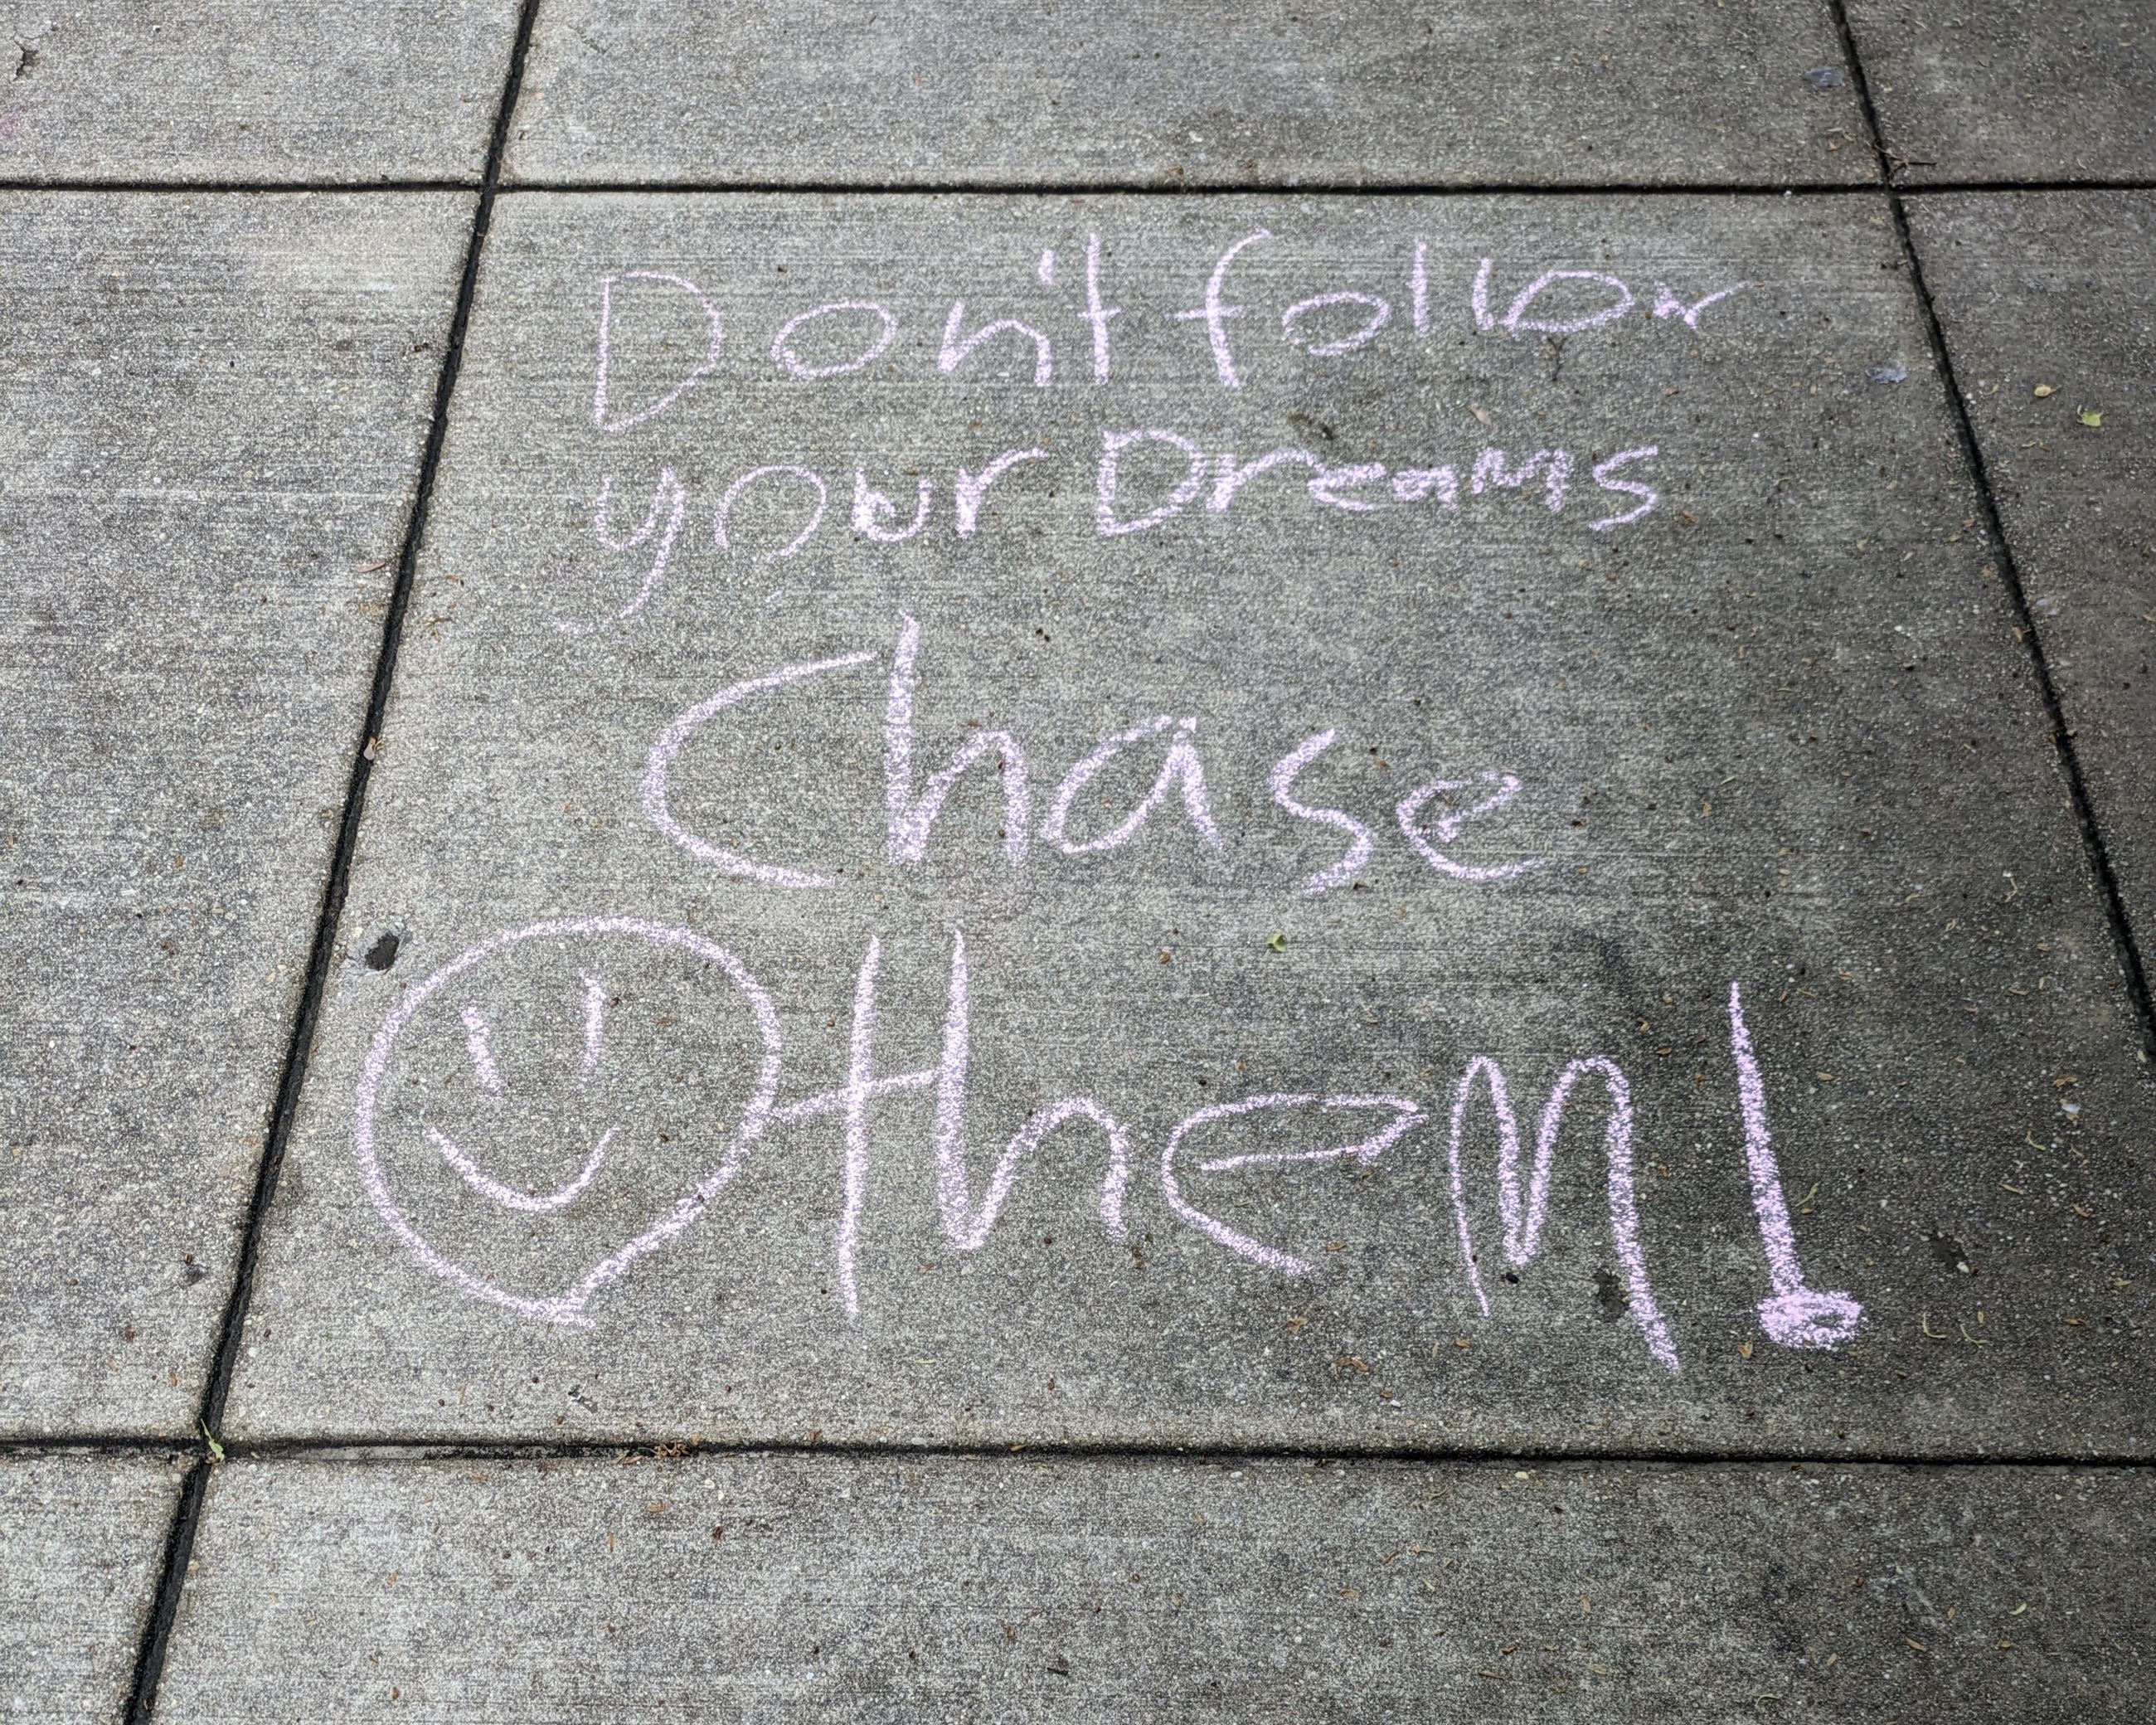 Don't follow
your Dreams
Chase
them!